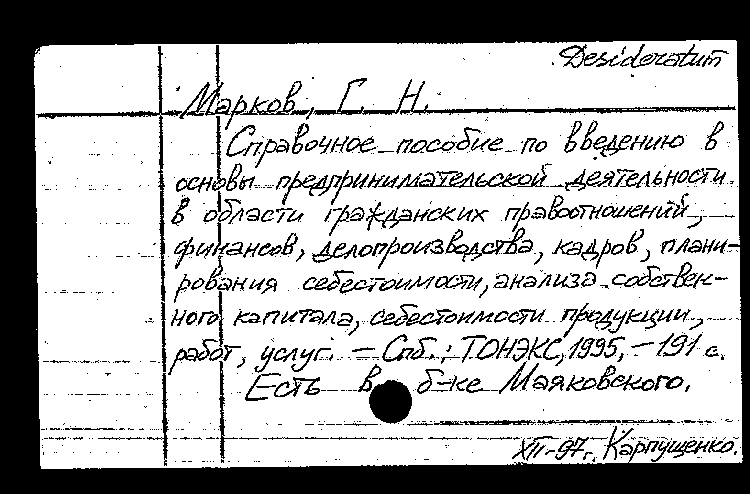 Desideratum
Марков, Г. Н.
Справочное пособие по введению в
основы предпринимательской деятельности
в области гражданских правоотношений,
финансов, делопроизводства, кадров, плани-
рования себестоимости, анализа собствен-
ного капитала, себестоимости продукции,
работ, услуг. — Спб.: ТОНЭКС, 1995. — 191 с.
Есть в б-ке Маяковского.
XII-97г. Карпущенко.